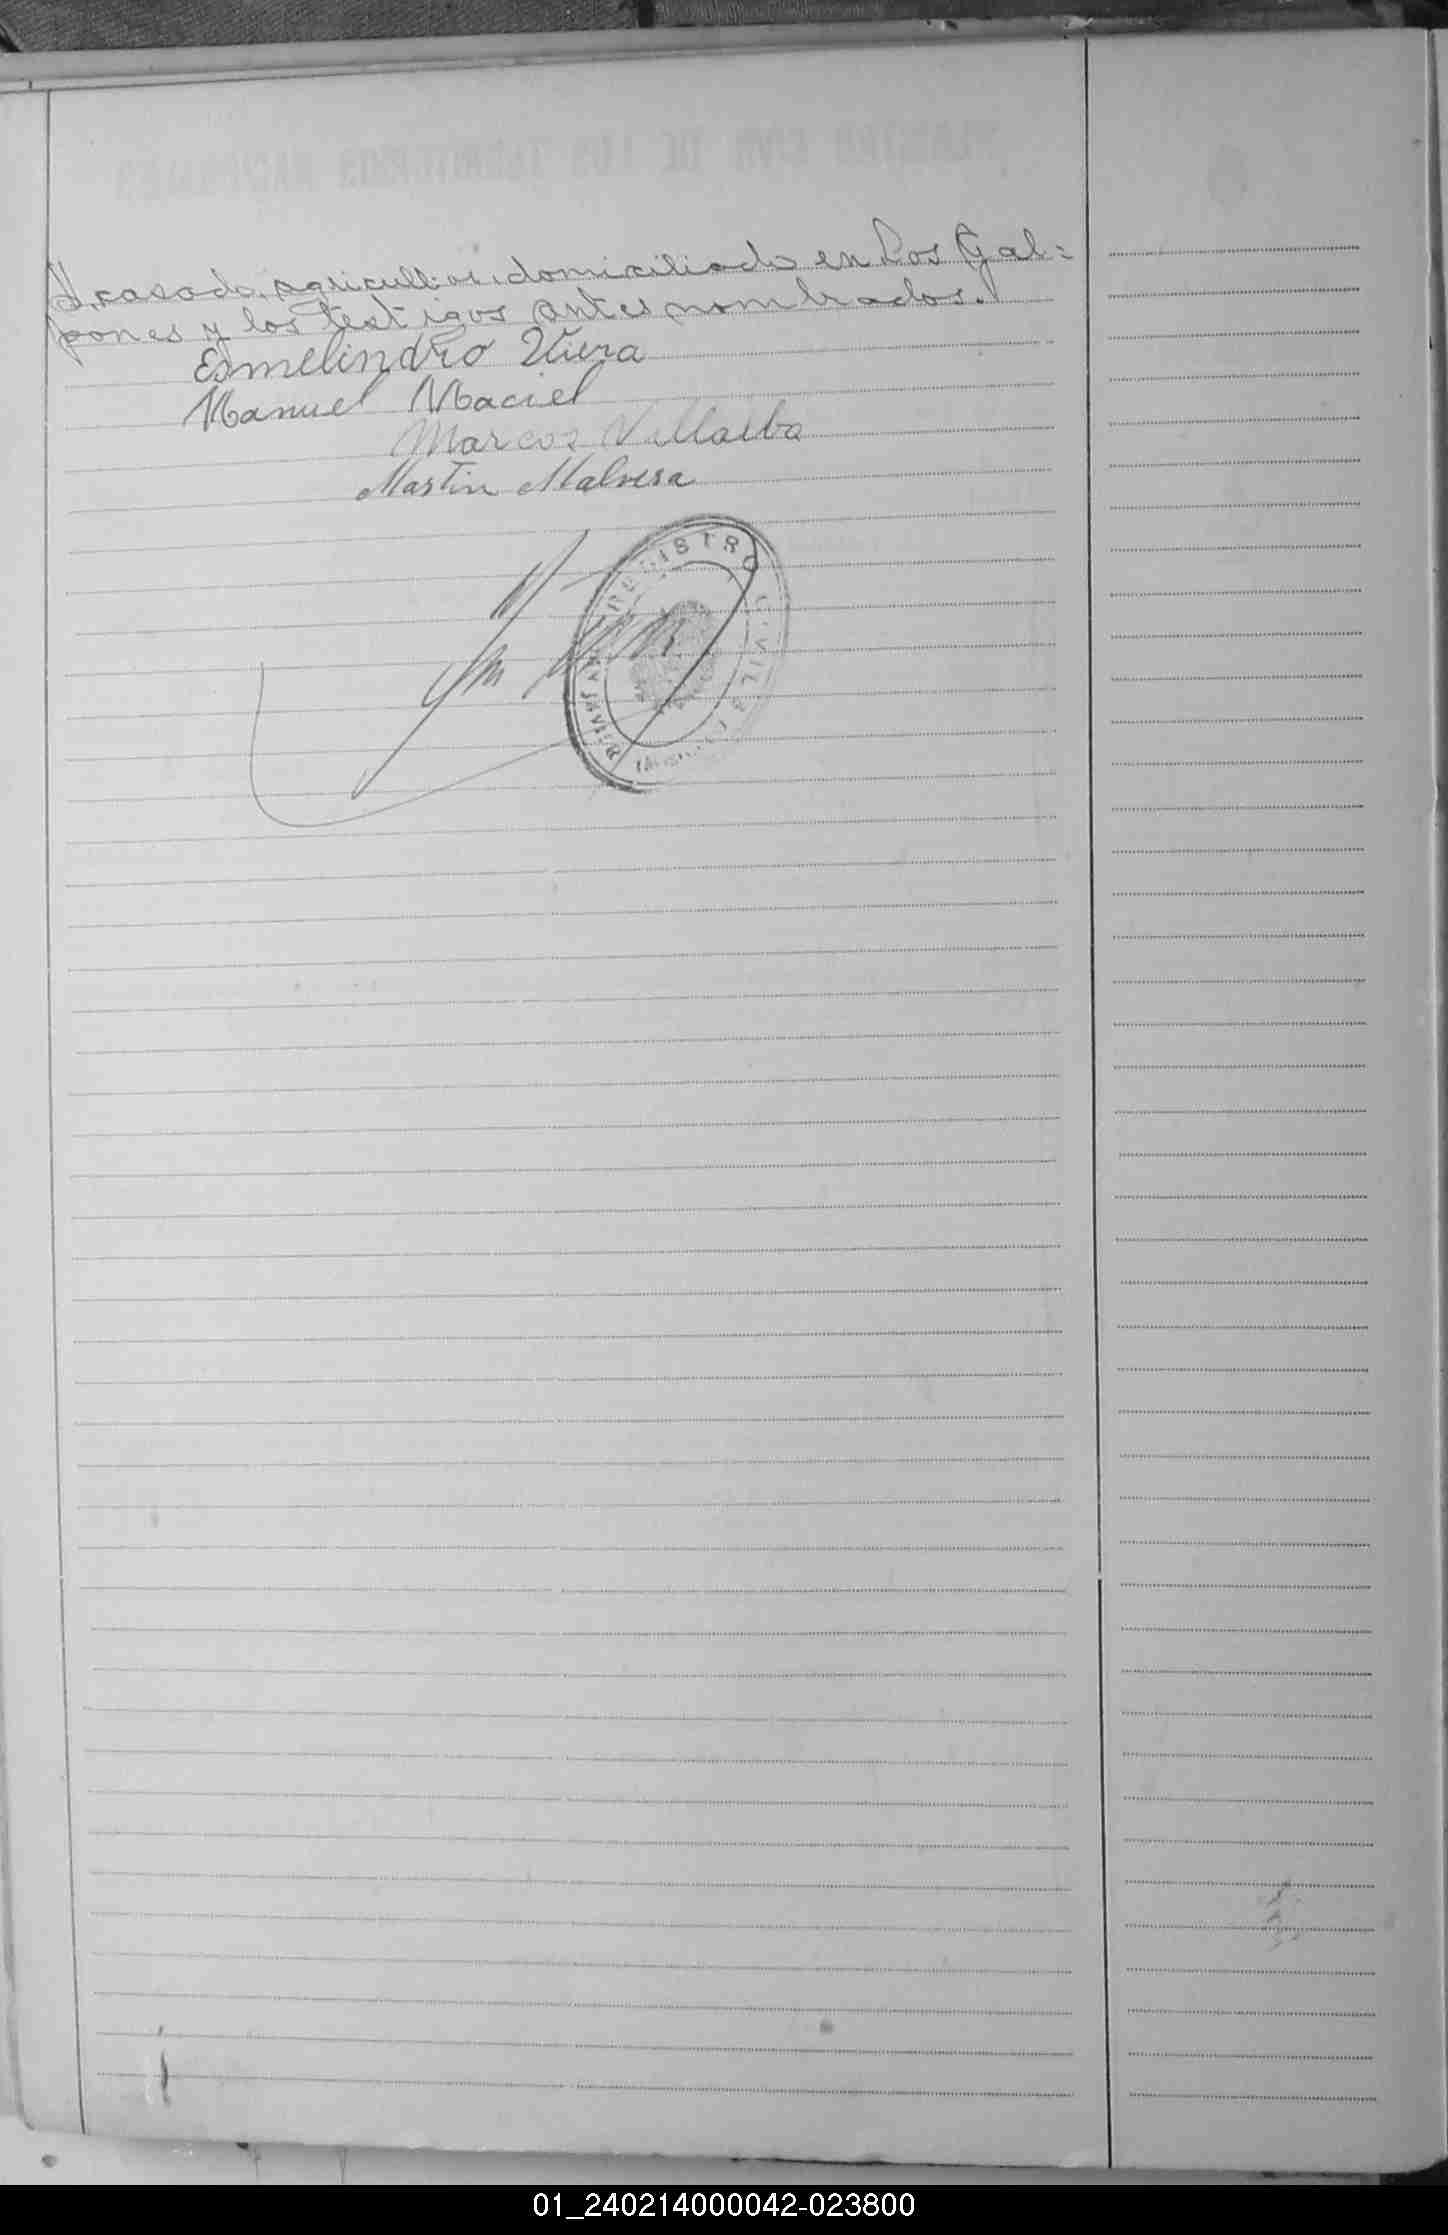 casado, agricultor, domiciliado en Los Gal=
pones y los testigos antes nombrados.
Esmelindro Viera
Manuel Maciel
Marcos Villalba
Martin Malvera
REGISTRO CIVIL
SAN JAVIER
01_240214000042-023800